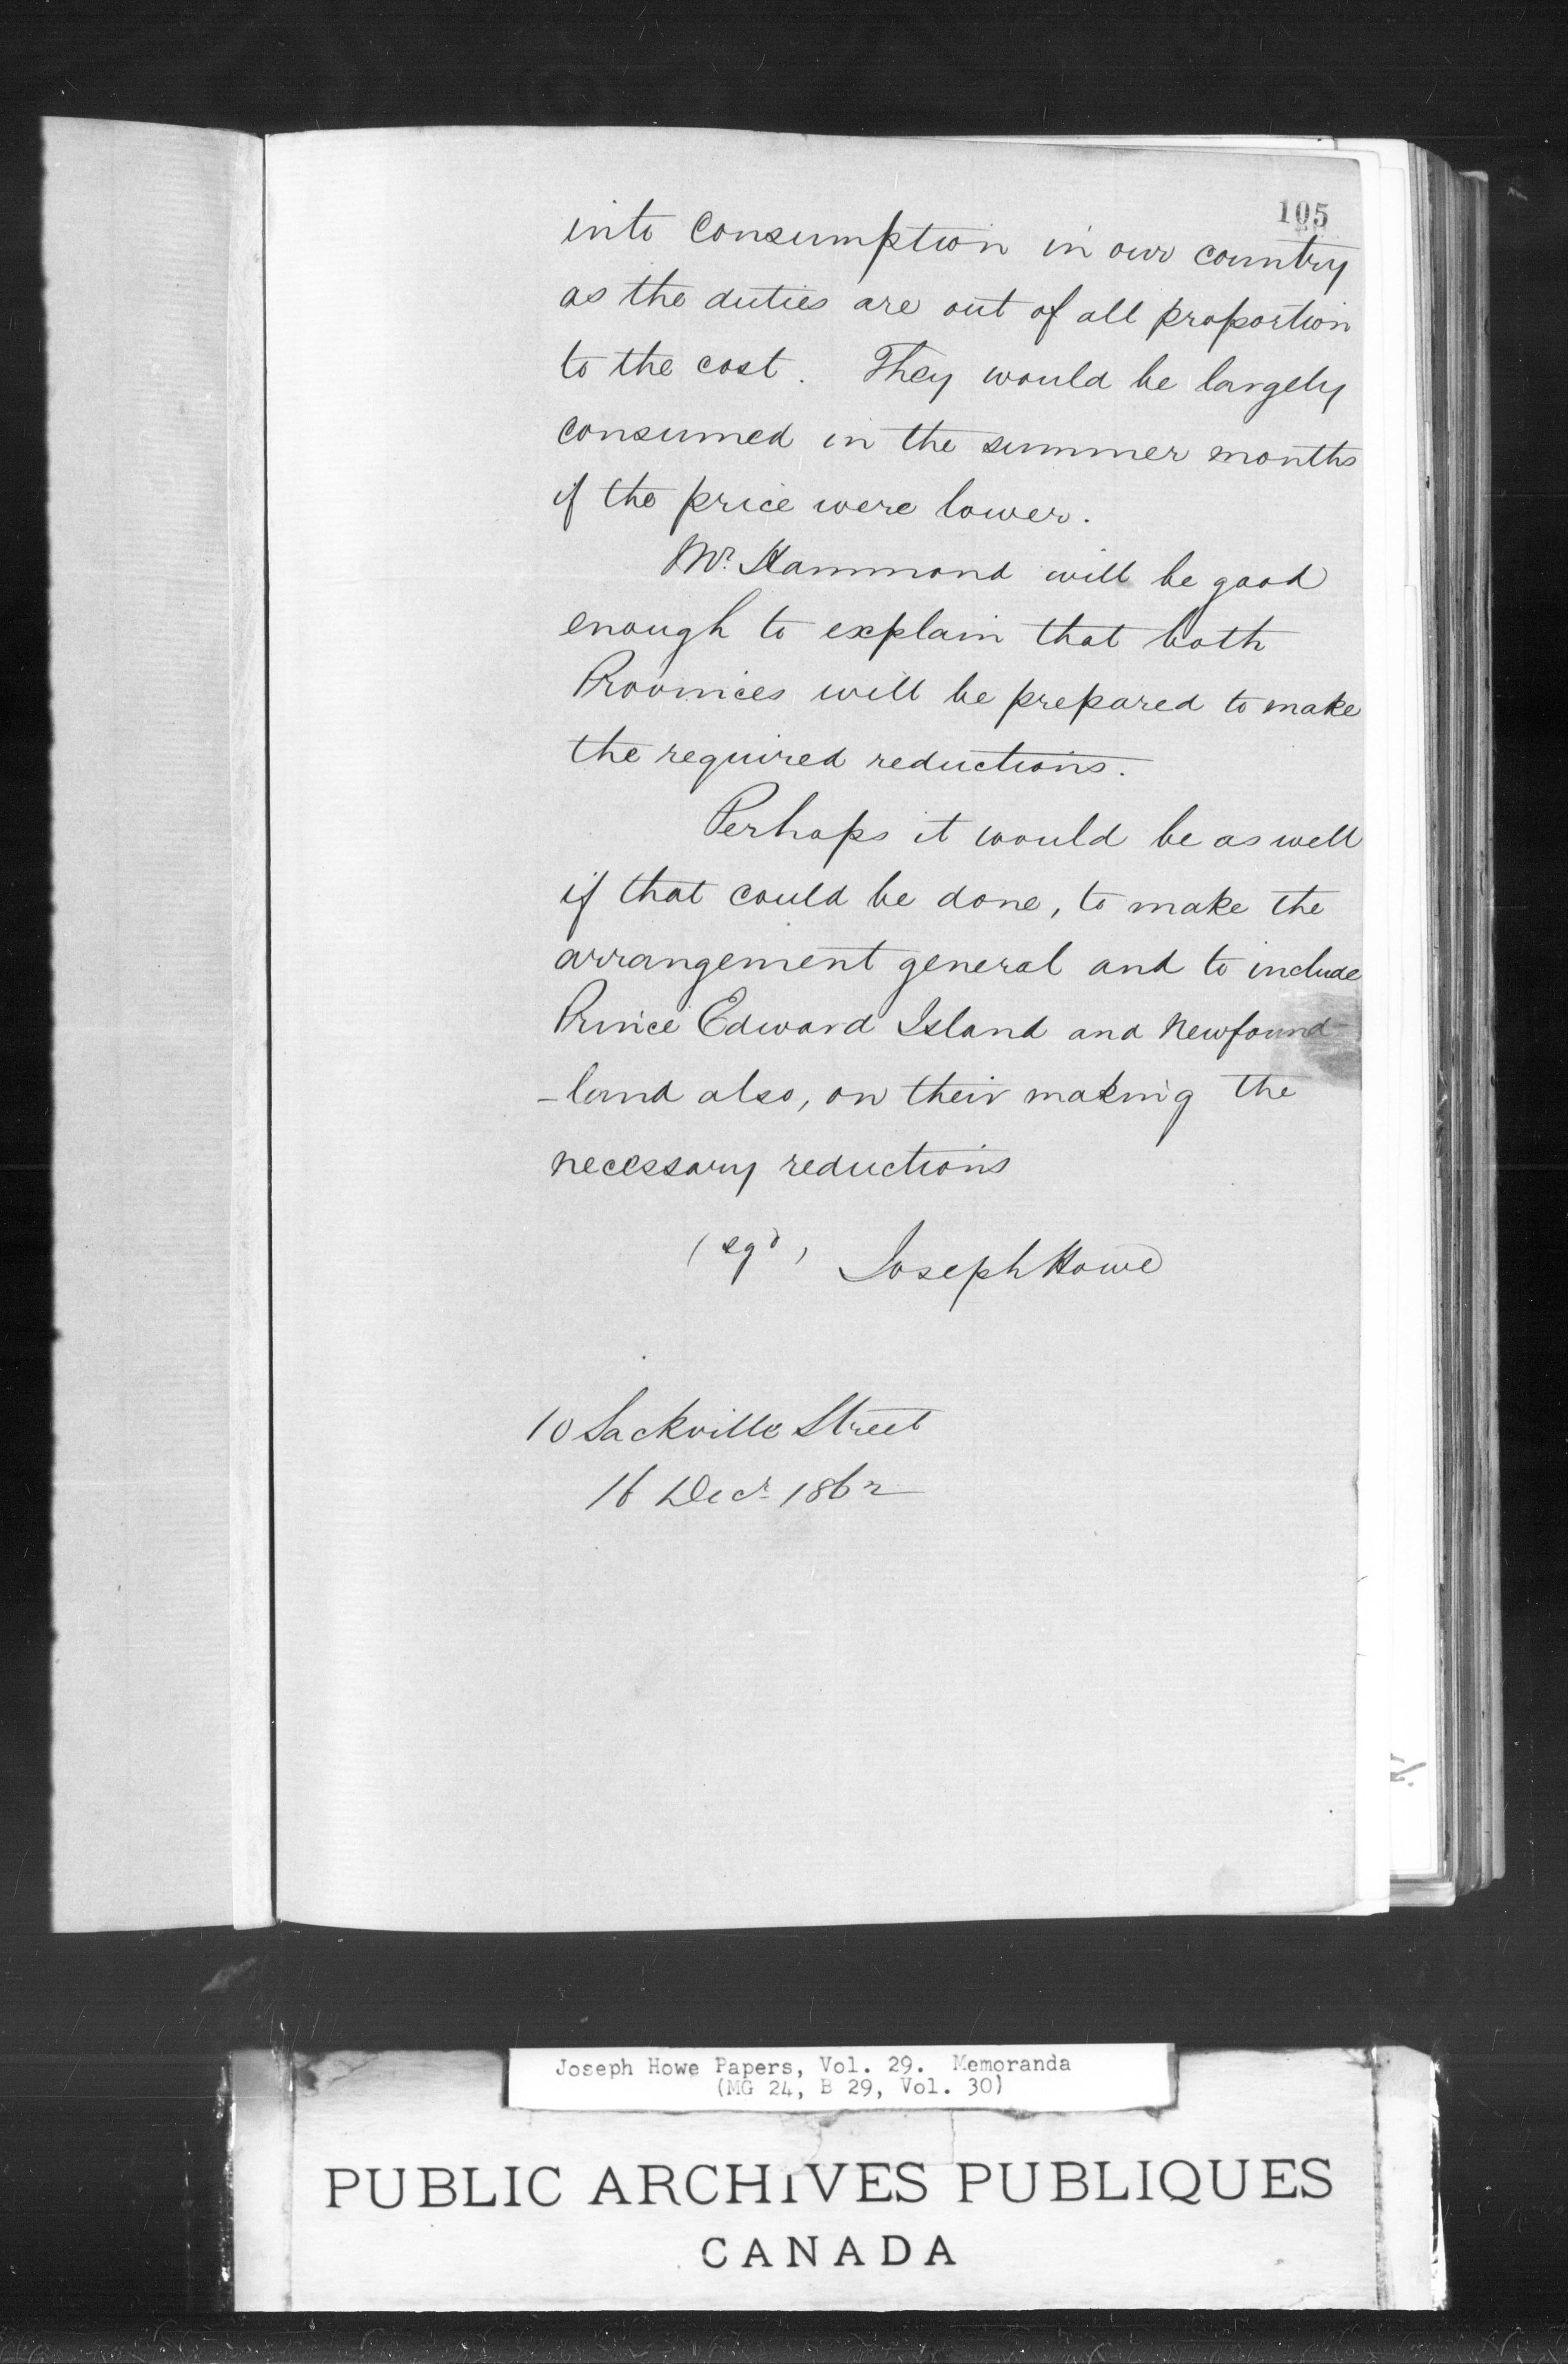 105
into Consumption in our country
as the duties are out of all proportion
to the cost. They would be largely
consumed in the summer months
if the price were lower.
Mr. Hammond will be good
enough to explain that both
Provinces will be prepared to make
the required reductions.
Perhaps it would be as well
if that could be done, to make the
arrangement general and to include
Prince Edward Island and Newfound-
-land also, on their making the
necessary reductions
(sgd) Joseph Howe
10 Sackville Street
16 Decr 1862
Joseph Howe Papers, Vol. 29. Memoranda
(MG 24, B 29, Vol. 30)
PUBLIC ARCHIVES PUBLIQUES
CANADA